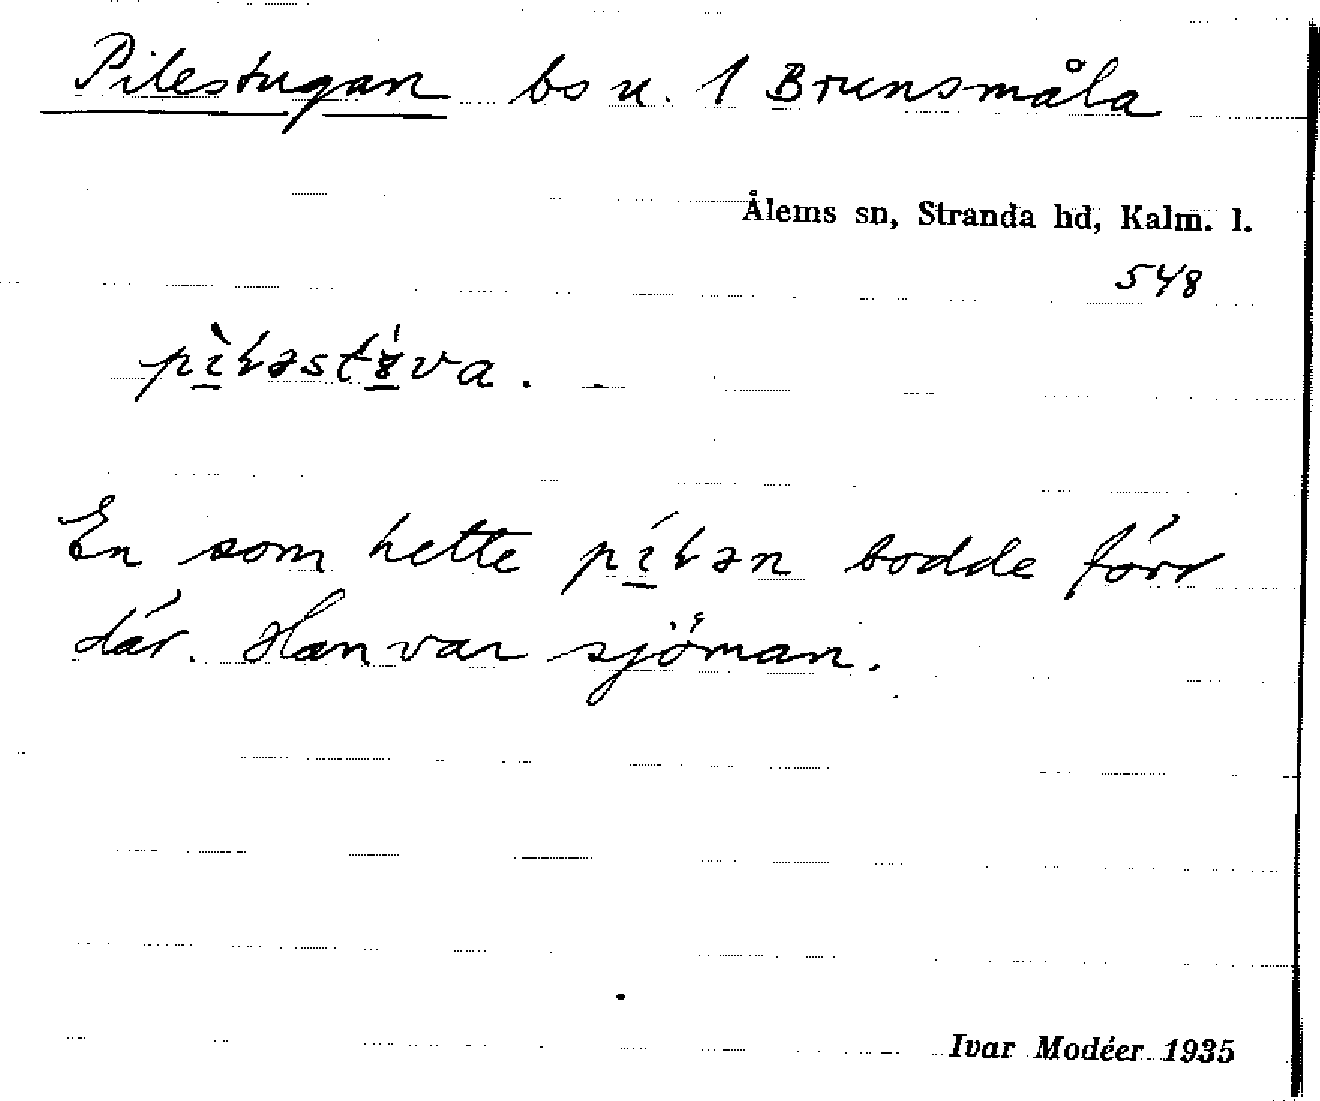 Pilestugan bs u. 1 Brunsmåla
Ålems sn, Stranda hd, Kalm. l.
548
En som hette bodde förr
där. Han var sjöman.
Ivar Modéer 1935